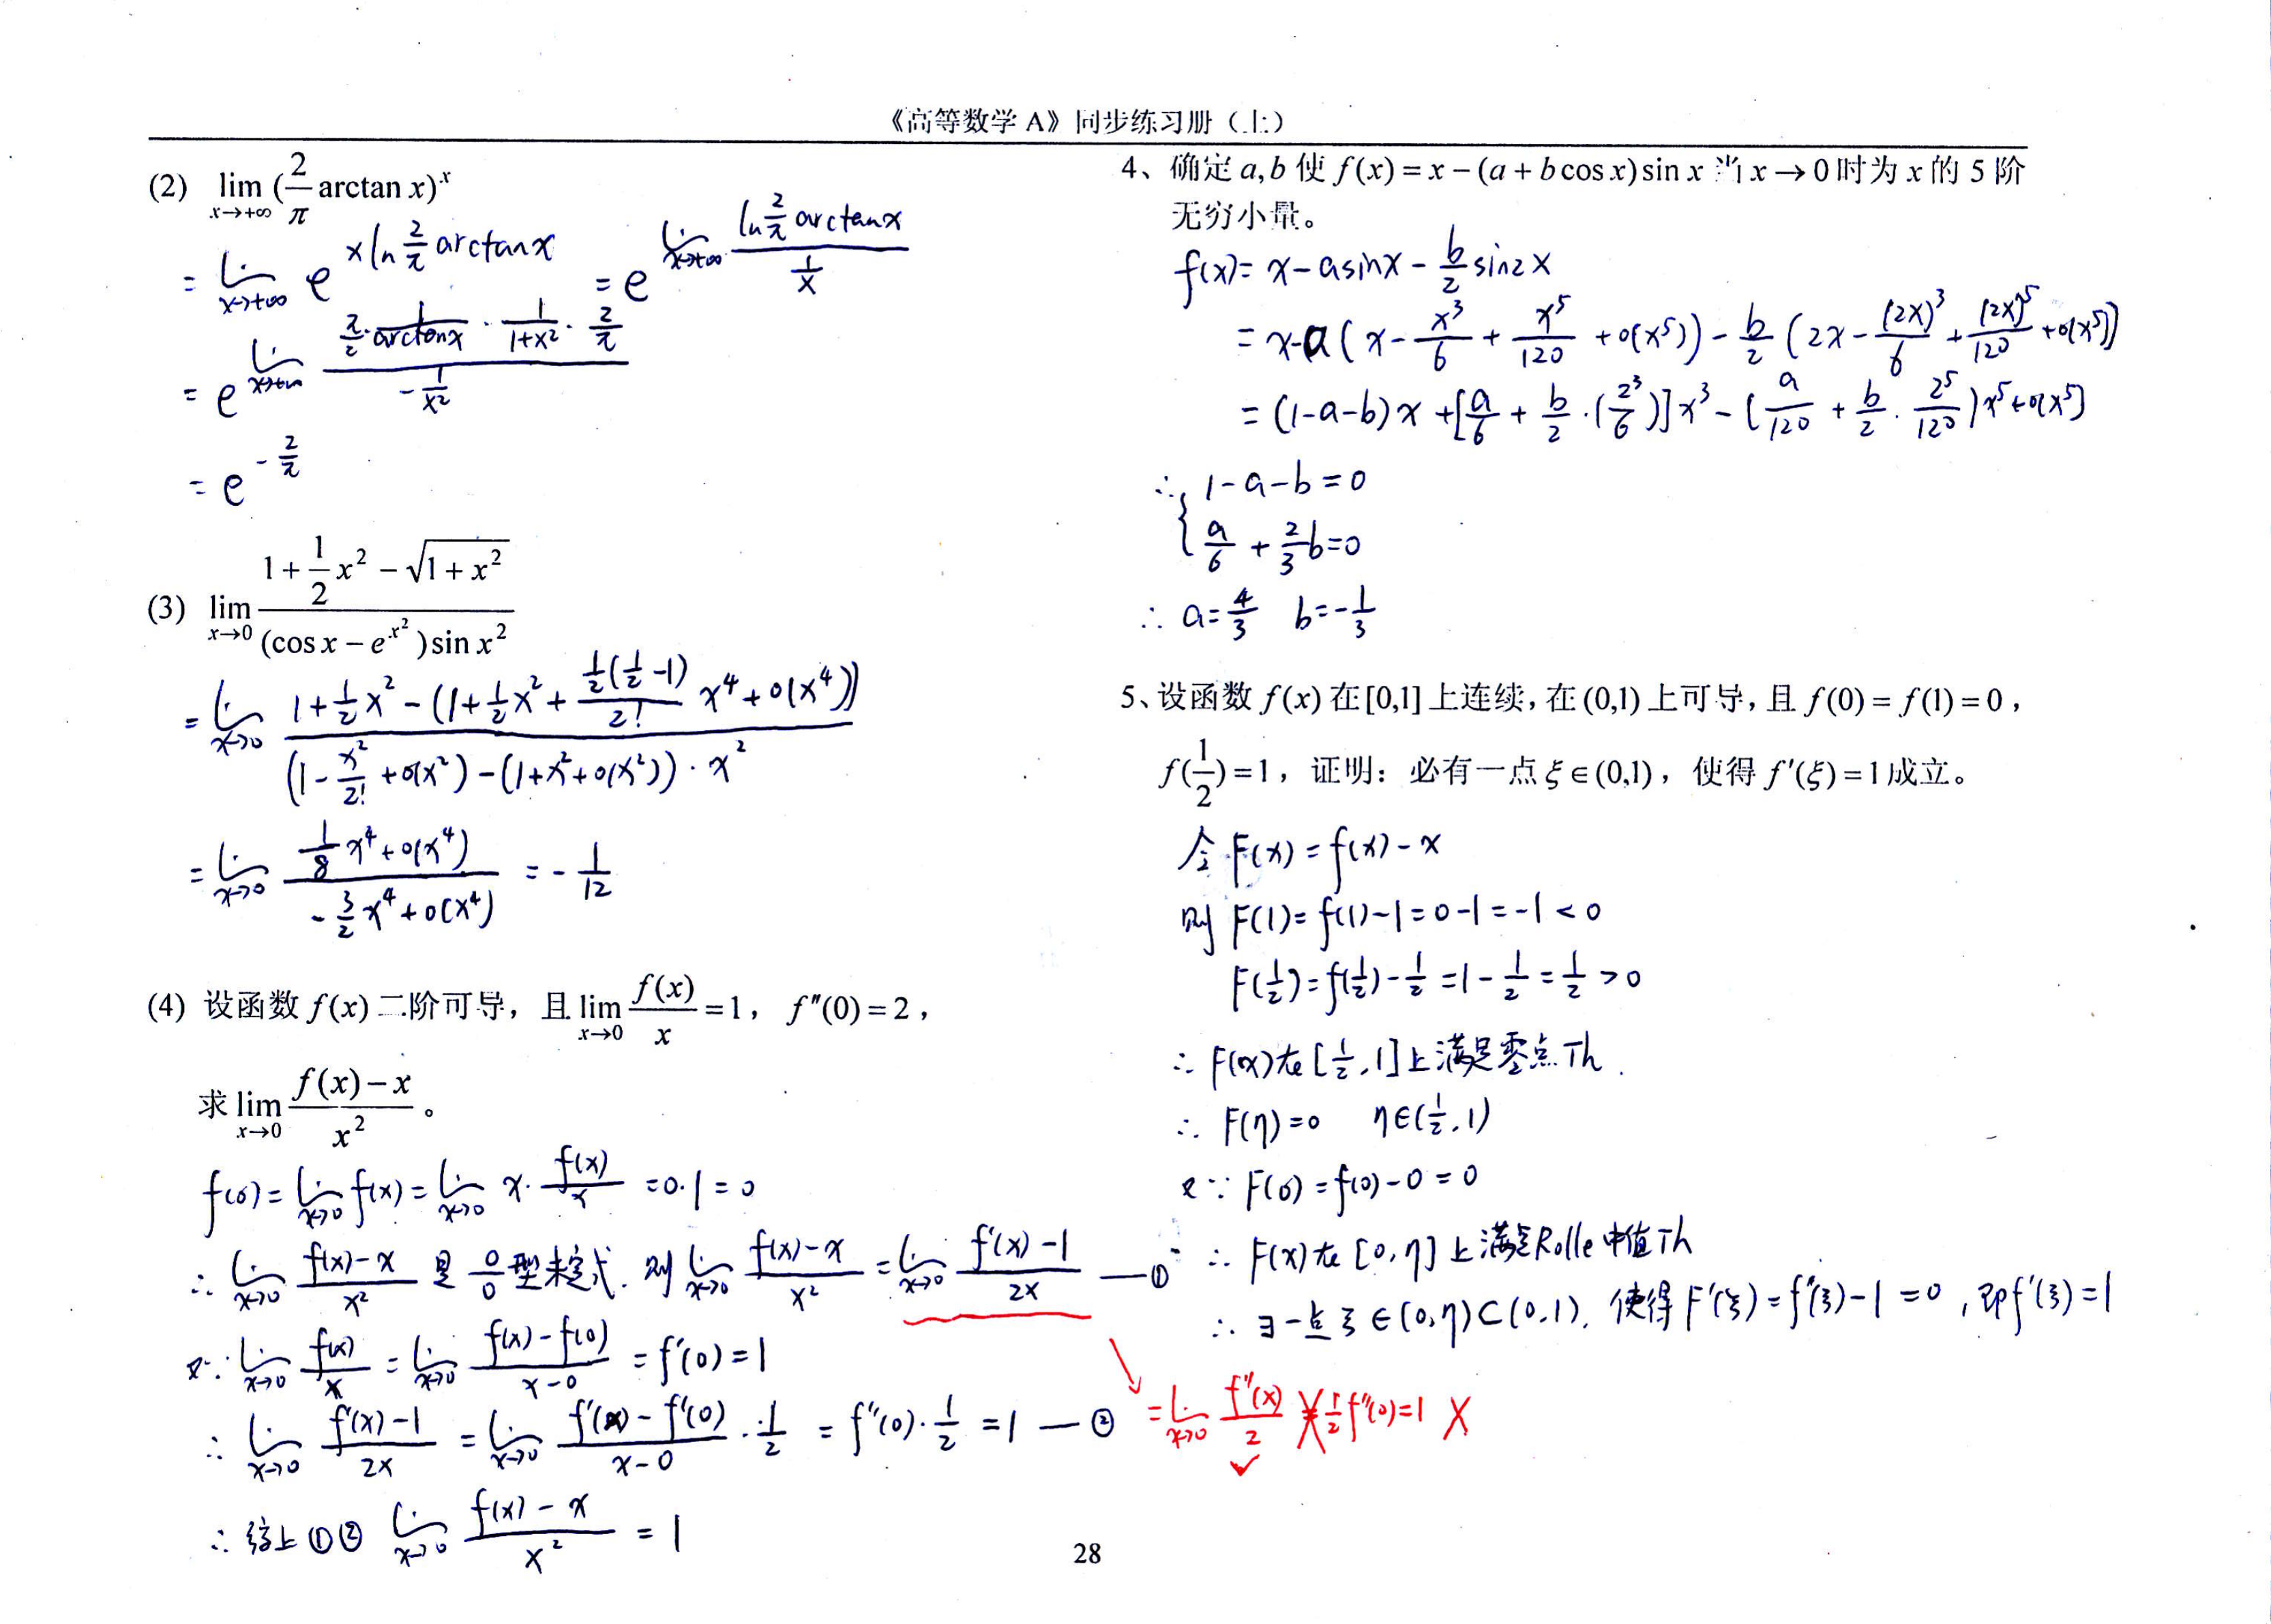 《高等数学 A》同步练习册（上）
(2) lim_{x→+∞} (2/π arctan x)^x
= lim_{x→+∞} e^{x ln 2/π arctanx} = e^{lim_{x→+∞} (ln 2/π arctanx)/(1/x)}
= e^{lim_{x→+∞} (π/2 · 1/arctanx · 1/(1+x²) · 2/π)/(-1/x²)}
= e^{-2/π}
(3) lim_{x→0} (1 + 1/2 x² - √(1 + x²))/((cos x - e^{x²}) sin x²)
= lim_{x→0} (1+1/2 x² - (1+1/2 x² + (1/2(1/2 -1))/2! x⁴ + o(x⁴)))/((1 - x²/2! + o(x²)) - (1+x²+o(x²))) · x²
= lim_{x→0} (1/8 x⁴+o(x⁴))/(-3/2 x⁴+o(x⁴)) = -1/12
(4) 设函数 f(x) 二阶可导，且 lim_{x→0} f(x)/x = 1， f″(0) = 2，
求 lim_{x→0} (f(x) - x)/x² 。
f(0) = lim_{x→0} f(x) = lim_{x→0} x · f(x)/x = 0·1 = 0
∴ lim_{x→0} (f(x)-x)/x² 是 0/0 型未定式. 则 lim_{x→0} (f(x)-x)/x² = lim_{x→0} (f′(x)-1)/2x —①
又∵ lim_{x→0} f(x)/x = lim_{x→0} (f(x)-f(0))/(x-0) = f′(0) = 1
∴ lim_{x→0} (f′(x)-1)/2x = lim_{x→0} (f′(x)-f′(0))/(x-0) · 1/2 = f″(0)·1/2 = 1 —②
∴ 综上①② lim_{x→0} (f(x)-x)/x² = 1
4、确定 a,b 使 f(x) = x - (a + b cos x) sin x 当 x → 0 时为 x 的 5 阶
无穷小量。
f(x) = x - a sinx - b/2 sin2x
= x-a(x - x³/6 + x⁵/120 + o(x⁵)) - b/2 (2x - (2x)³/6 + (2x)⁵/120 + o(x⁵))
= (1-a-b)x + [a/6 + b/2 · (2³/6)]x³ - (a/120 + b/2 · 2⁵/120)x⁵+o(x⁵)
∴ { 1-a-b = 0
a/6 + 2/3 b = 0
∴ a = 4/3 b = -1/3
5、设函数 f(x) 在 [0,1] 上连续，在 (0,1) 上可导，且 f(0) = f(1) = 0，
f(1/2) = 1，证明：必有一点 ξ ∈ (0,1)，使得 f′(ξ) = 1 成立。
令 F(x) = f(x) - x
则 F(1) = f(1)-1 = 0-1 = -1 < 0
F(1/2) = f(1/2) - 1/2 = 1 - 1/2 = 1/2 > 0
∴ F(x) 在 [1/2, 1] 上满足零点Th.
∴ F(η) = 0 η∈(1/2, 1)
又∵ F(0) = f(0) - 0 = 0
∴ F(x) 在 [0, η] 上满足Rolle中值Th
∴ ∃一点 ξ ∈ (0, η) ⊂ (0, 1). 使得 F′(ξ) = f′(ξ) - 1 = 0, 即 f′(ξ) = 1
= lim_{x→0} f″(x)/2 ╳ 1/2 f″(0) = 1 ╳
✓
28